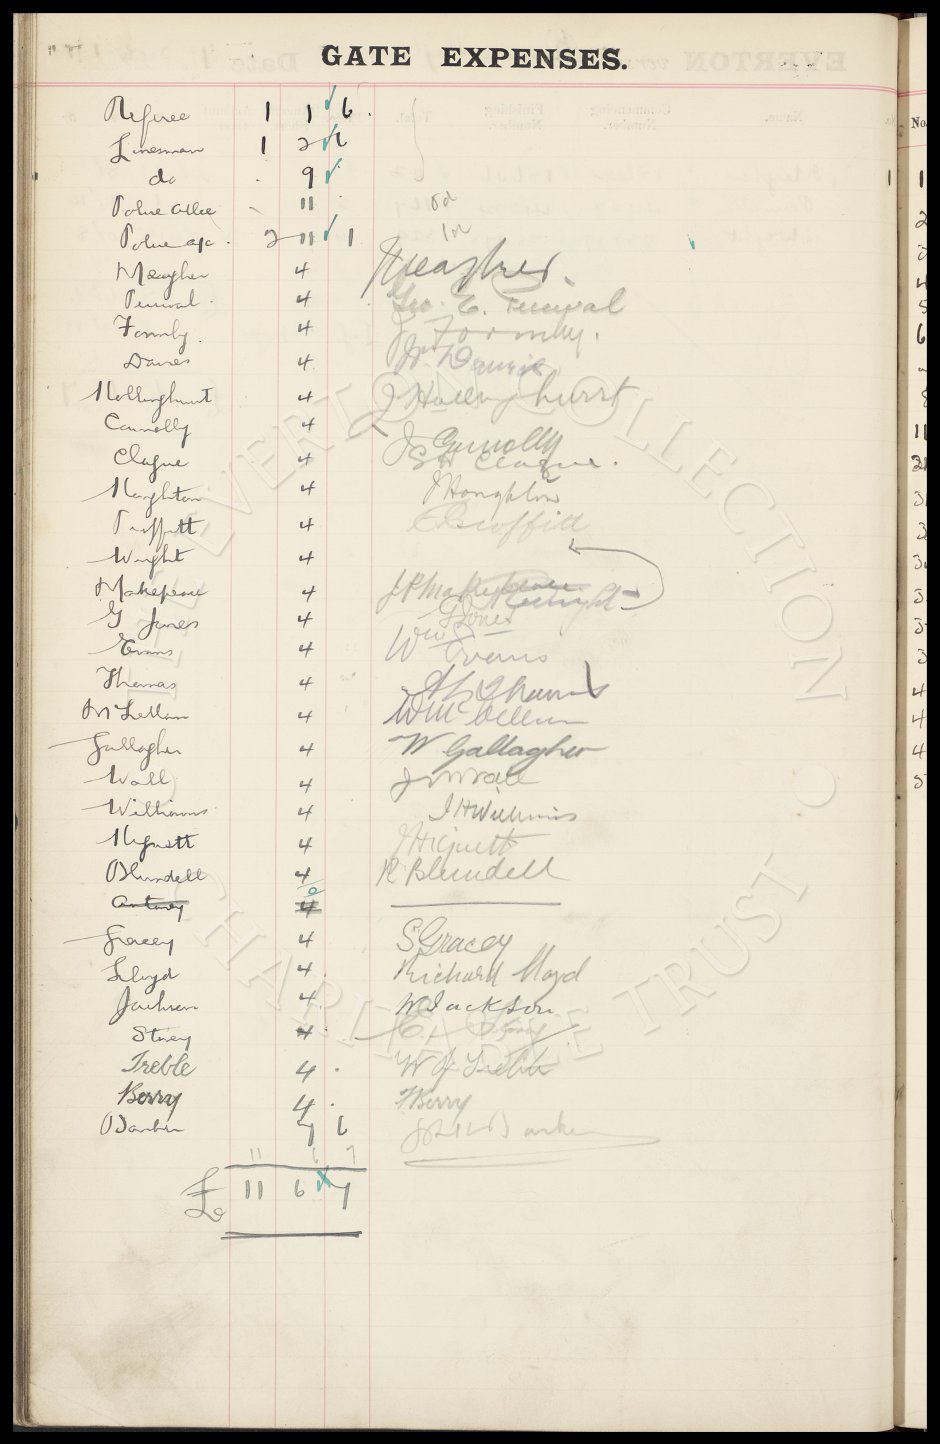 GATE EXPENSES.
Referee 1 1 6.
Linesman 1 2 6
do . 9
Police Office - 11
Police a/c . 2 11 1
Meagher 4 J Meagher.
Percival . 4 Geo. E. Percival
Formby. 4 J Formby.
Davies 4 Davies
Hollinghurst 4 J Hollinghurst
Connolly 4 J Connolly
Clague 4 S H Clague.
Houghton 4 J Houghton
Proffitt 4 C Proffitt
Wright 4
Makepeace 4 Wright
G Jones 4 G Jones
Evans 4 Wm Evans
Thomas 4 Thomas
McLellan 4 W McLellan
Gallagher 4 W Gallagher
Wall 4 Wall
Williams 4 J H Williams
Hignett 4 J Hignett
Blundell 4 R Blundell
4
Gracey 4 S Gracey
Lloyd 4. Richard Lloyd
Jackson 4. W Jackson
Storey 4. E. Storey
Treble 4. W J Treble
Berry 4. F Berry
Barker 7 6 Barker
11 6 7
£ 11 6 7
No.
1
1
2
4
5
6
8
11